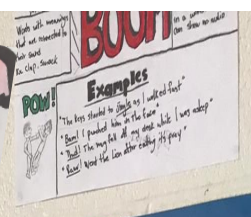 Words with meanings
that are connected to
their sound
Ex. Clap, Smack
BOOM
in a
can show no audio
POW!
Examples
"The keys started to jingle as I walked fast"
"Bam! I punched him in the face"
"Thud! The mug fell off my desk while I was asleep"
"Raw! Went the lion after eating its prey"